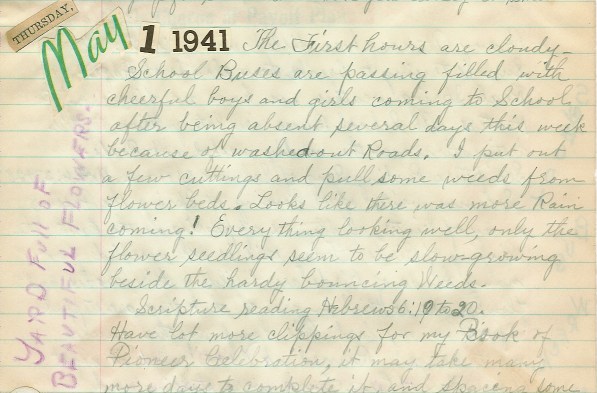 THURSDAY,
May 1 1941 The First hours are cloudy-
School Buses are passing filled with
cheerful boys and girls coming to School
after being absent several days this week
because of washedout Roads. I put out
a few cuttings and pull some weeds from
flower beds. Looks like there was more Rain
coming! Every thing looking well, only the
flower seedlings seem to be slow-growing
beside the hardy bouncing Weeds.
Scripture reading Hebrews 6:19 to 20.
Have lot more clippings for my Book of
Pioneer Celebration, it may take many
more days to complete it, and spacing some
YARD FULL OF
BEAUTIFUL FLOWERS.